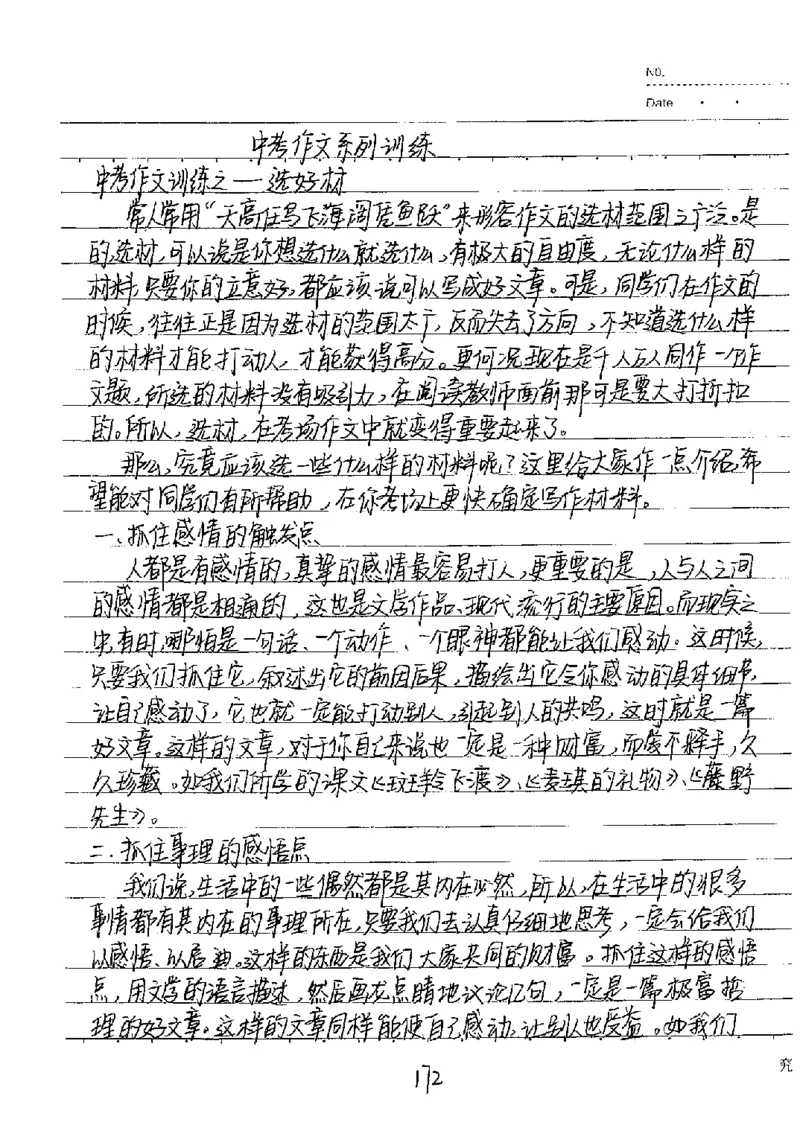 NO.
Date
中考作文系列训练
中考作文训练之一——选好材
常人常用“天高任鸟飞海阔凭鱼跃”来形容作文的选材范围之广泛。是
的选材,可以说是你想选什么就选什么,有极大的自由度,无论什么样的
材料,只要你的立意好,都应该说可以写成好文章。可是,同学们在作文的
时候,往往正是因为选材的范围太广,反而失去了方向,不知道选什么样
的材料才能打动人,才能获得高分。更何况现在是千人万人同作一个作
文题,所选的材料没有吸引力,在阅读教师面前那可是要大打折扣
的。所以,选材,在考场作文中就变得重要起来了。
那么,究竟应该选一些什么样的材料呢?这里给大家作一点介绍,希
望能对同学们有所帮助,在你考场上更快确定写作材料。
一、抓住感情的触发点
人都是有感情的,真挚的感情最容易打人,更重要的是,人与人之间
的感情都是相通的,这也是文学作品、现代流行的主要原因。而现实之
中,有时,哪怕是一句话、一个动作、一个眼神都能让我们感动。这时候,
只要我们抓住它,叙述出它的前因后果,描绘出它令你感动的具体细节,
让自己感动了,它也就一定能打动别人,引起别人的共鸣,这时就是一篇
好文章。这样的文章,对于你自己来说也一定是一种财富,而爱不释手,久
久珍藏。如我们所学的课文《斑羚飞渡》、《麦琪的礼物》、《藤野
先生》。
二、抓住事理的感悟点
我们说,生活中的一些偶然都是其内在必然,所以,在生活中的很多
事情都有其内在的事理所在,只要我们去认真仔细地思考,一定会给我们
以感悟、以启迪。这样的东西是我们大家共同的财富。抓住这样的感悟
点,用文学的语言描述,然后画龙点睛地议论几句,一定是一篇极富哲
理的好文章。这样的文章同样能使自己感动,让别人也受益。如我们
172
究